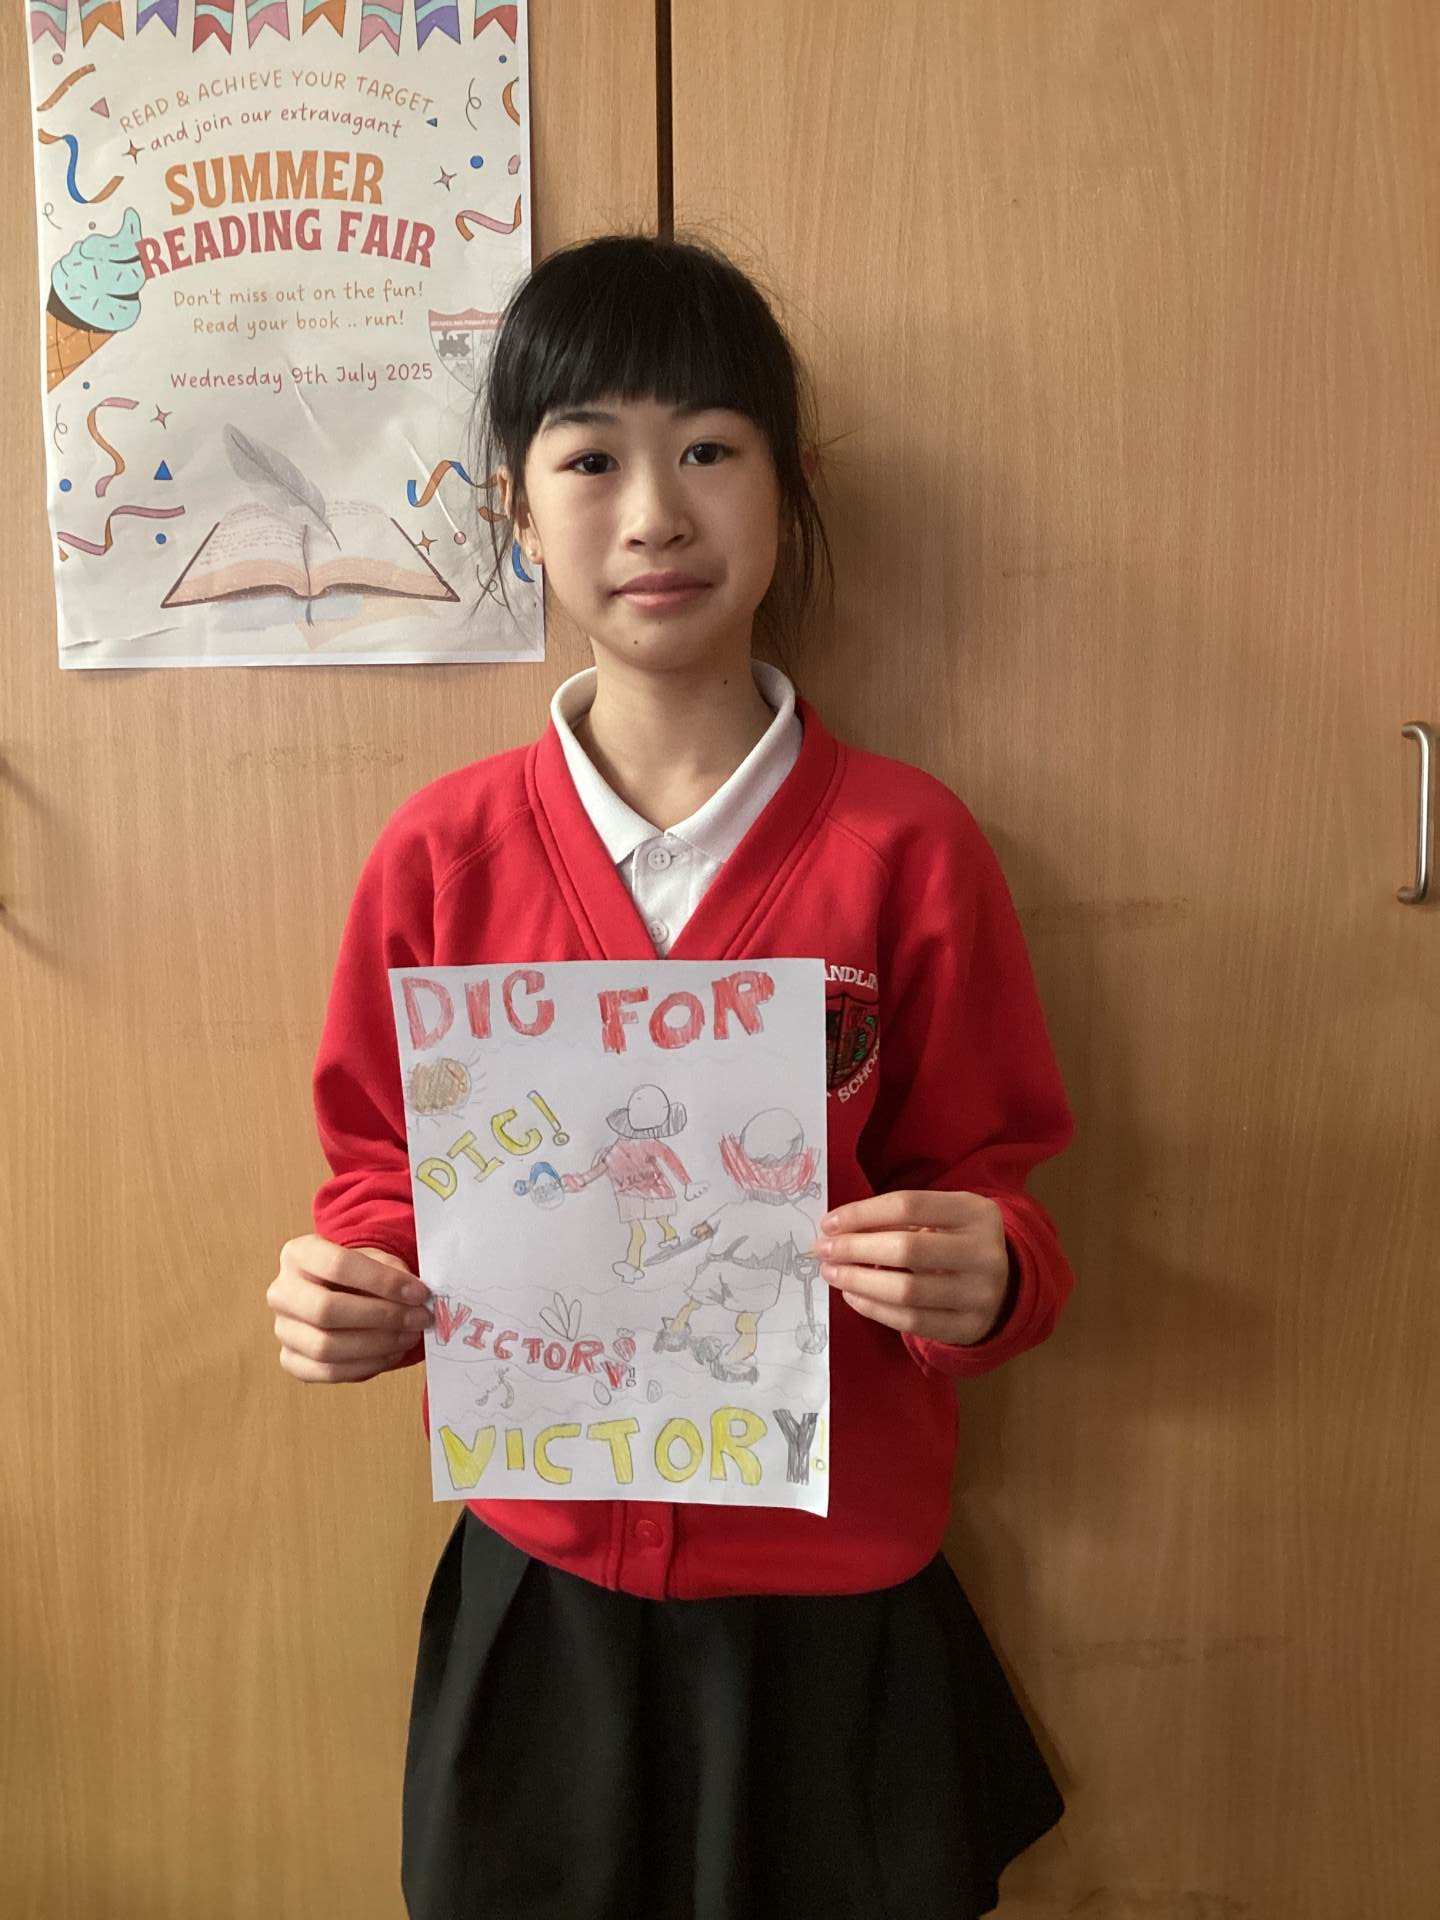 READ & ACHIEVE YOUR TARGET
and join our extravagant
SUMMER
READING FAIR
Don't miss out on the fun!
Read your book .. run!
Wednesday 9th July 2025
ANDLIN
SCHOOL
DIG FOR
DIG!
VICTORY!
VICTORY!